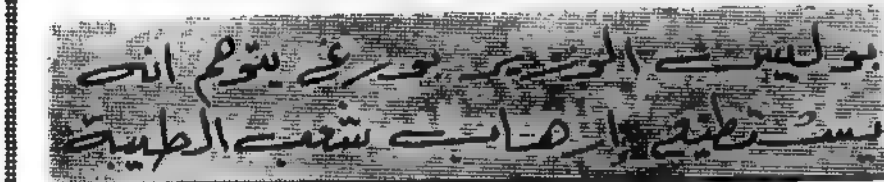 بوليس الوزير بورزي يتوهم انه
يستطيع إرهاب شعب الطيبة